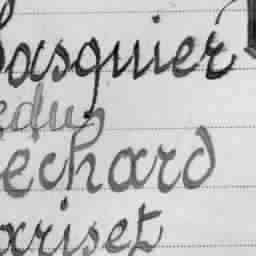 Pasquier
edus
echard
ariset